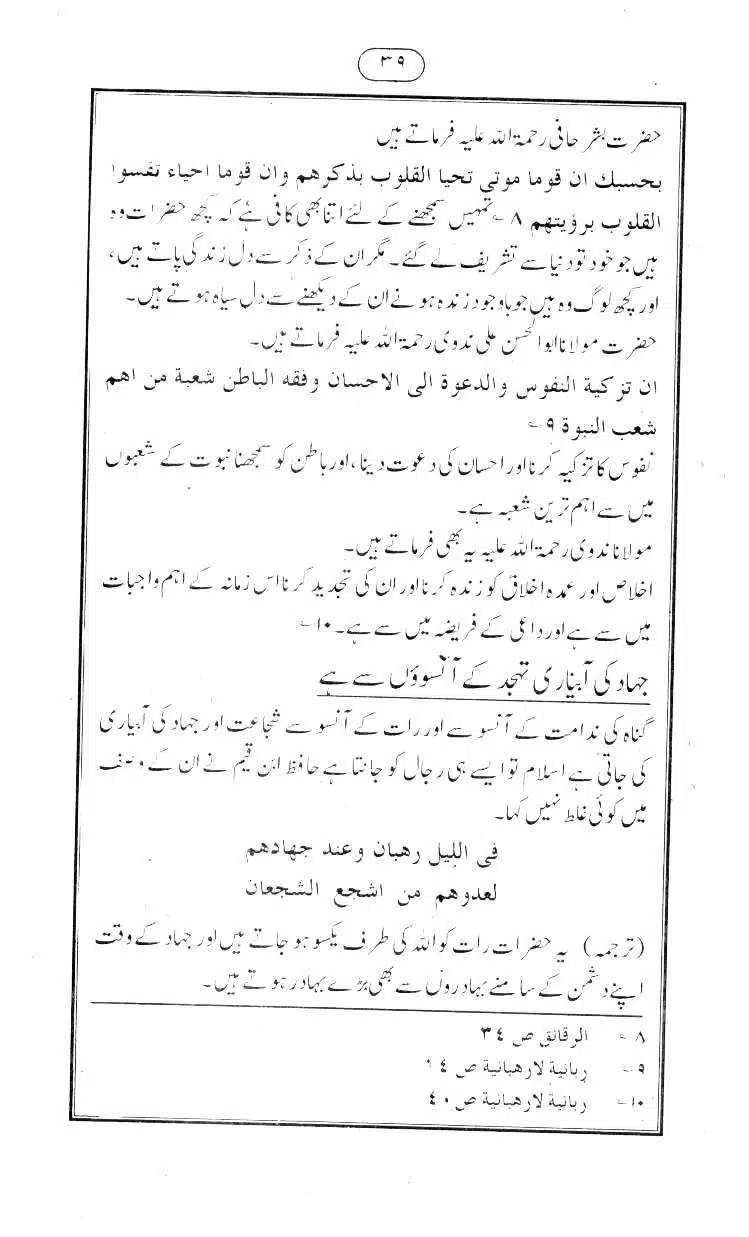 ۳۹
حضرت بشر حافی رحمۃ اللہ علیہ فرماتے ہیں
بحسبك ان قوما موتي تحيا القلوب بذكرهم وان قوما احياء تفسوا
القلوب برؤيتهم ۸؎ تمہیں سمجھنے کے لئے اتنا بھی کافی ہے کہ کچھ حضرات وہ
ہیں جو خود تو دنیا سے تشریف لے گئے۔ مگر ان کے ذکر سے دل زندگی پاتے ہیں،
اور کچھ لوگ وہ ہیں جو باوجود زندہ ہونے ان کے دیکھنے سے دل سیاہ ہوتے ہیں۔
حضرت مولانا ابوالحسن علی ندوی رحمۃ اللہ علیہ فرماتے ہیں۔
ان تزكية النفوس والدعوة الى الاحسان وفقه الباطن شعبة من اهم
شعب النبوة ۹؎
نفوس کا تزکیہ کرنا اور احسان کی دعوت دینا، اور باطن کو سمجھنا نبوت کے شعبوں
میں سے اہم ترین شعبہ ہے۔
مولانا ندوی رحمۃ اللہ علیہ یہ بھی فرماتے ہیں۔
اخلاص اور عمدہ اخلاق کو زندہ کرنا اور ان کی تجدید کرنا اس زمانہ کے اہم واجبات
میں سے ہے اور داعی کے فریضہ میں سے ہے۔ ۱۰؎
جہاد کی آبیاری تہجد کے آنسوؤں سے ہے
گناہ کی ندامت کے آنسو سے اور رات کے آنسو سے شجاعت اور جہاد کی آبیاری
کی جاتی ہے اسلام تو ایسے ہی رجال کو جانتا ہے حافظ ابن قیم نے ان کے وصف
میں کوئی غلط نہیں کہا۔
فى الليل رهبان وعند جهادهم
لعدوهم من اشجع الشجعان
(ترجمہ) یہ حضرات رات کو اللہ کی طرف یکسو ہو جاتے ہیں اور جہاد کے وقت
اپنے دشمن کے سامنے بہادروں سے بھی بڑے بہادر ہوتے ہیں۔
۸؎ الرقائق ص ٣٤
۹؎ ربانية لارهبانية ص ١٤
۱۰؎ ربانية لارهبانية ص ٤٠